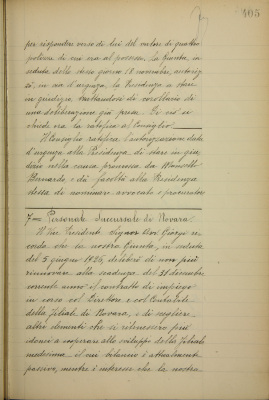 105
per rispondere verso di lui del valore di quattro
polizze di cui era al possesso. La Giunta, in
seduta dello stesso giorno 18 novembre, autoriz-
zò, in via d'urgenza, la Presidenza a stare
in giudizio trattandosi di corollario di
una deliberazione già presa. Di ciò si
chiede ora la ratifica al Consiglio.
Il Consiglio ratifica l'autorizzazione data
d'urgenza alla Presidenza di stare in giu-
dizio nella causa promossa da
Bernardo, e dà facoltà alla Presidenza
stessa di nominare avvocato e procuratore
7 = Personale Succursale di Novara =
Il Vice Presidente, Signor Cav. Giorgi ri-
corda che la nostra Giunta, in seduta
del 5 giugno 1926, deliberò di non più
rinnovare alla scadenza del 31 dicembre
corrente anno il contratto di impiego
in corso col Direttore e col Contabile
della Filiale di Novara, e di scegliere
altri elementi che si ritenessero più
idonei a cooperare allo sviluppo della Filiale
medesima il cui bilancio è attualmente
passivo, mentre è interesse che la nostra